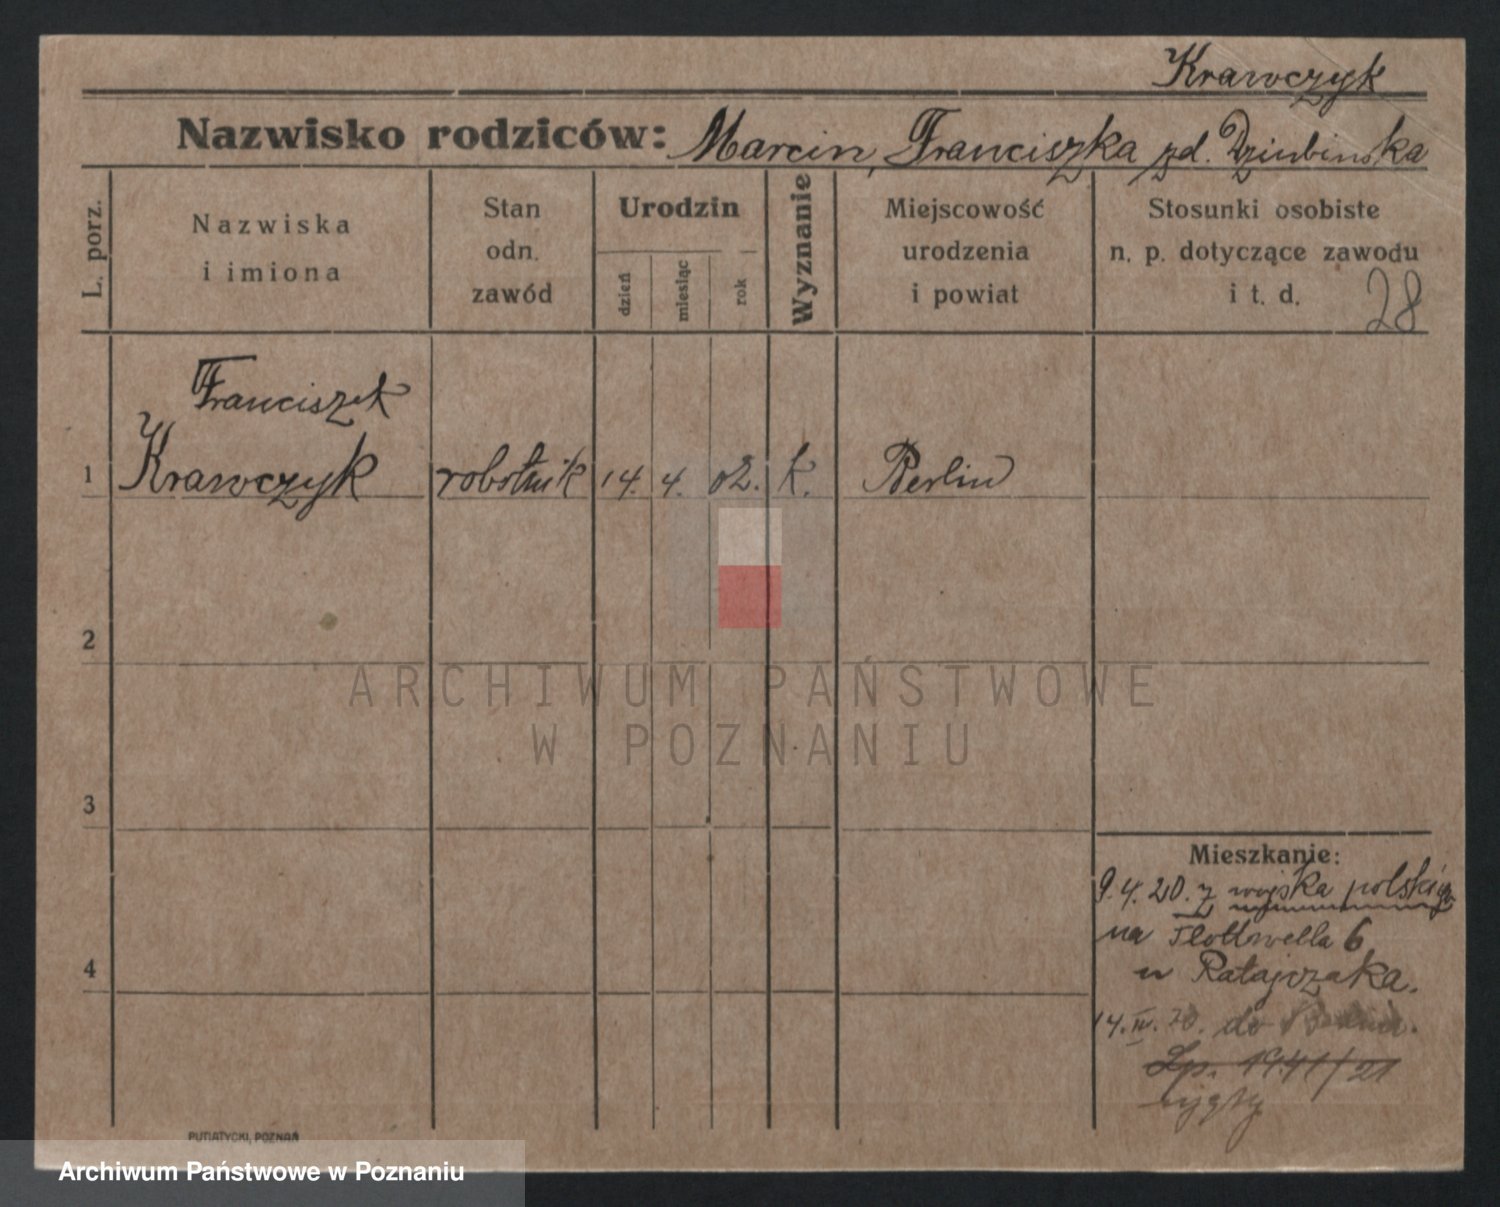 Krawczyk
Nazwisko rodziców: Marcin, Franciszka zd. Dziubinska
L. porz.
Nazwiska
i imiona
Stan
odn.
zawód
Urodzin
dzień
miesiąc
rok
Wyznanie
Miejscowość
urodzenia
i powiat
Stosunki osobiste
n. p. dotyczące zawodu
i t. d.
28
Franciszek
1 Krawczyk robotnik 14. 4. 02. k. Berlin
2
ARCHIWUM PAŃSTWOWE
W POZNANIU
3
Mieszkanie:
9.4.20. z wojska polskiego
na Flottwella 6
u Ratajczaka.
4
14. 20. do
Lp. 1941/21
PUTIATYCKI, POZNAŃ
Archiwum Państwowe w Poznaniu